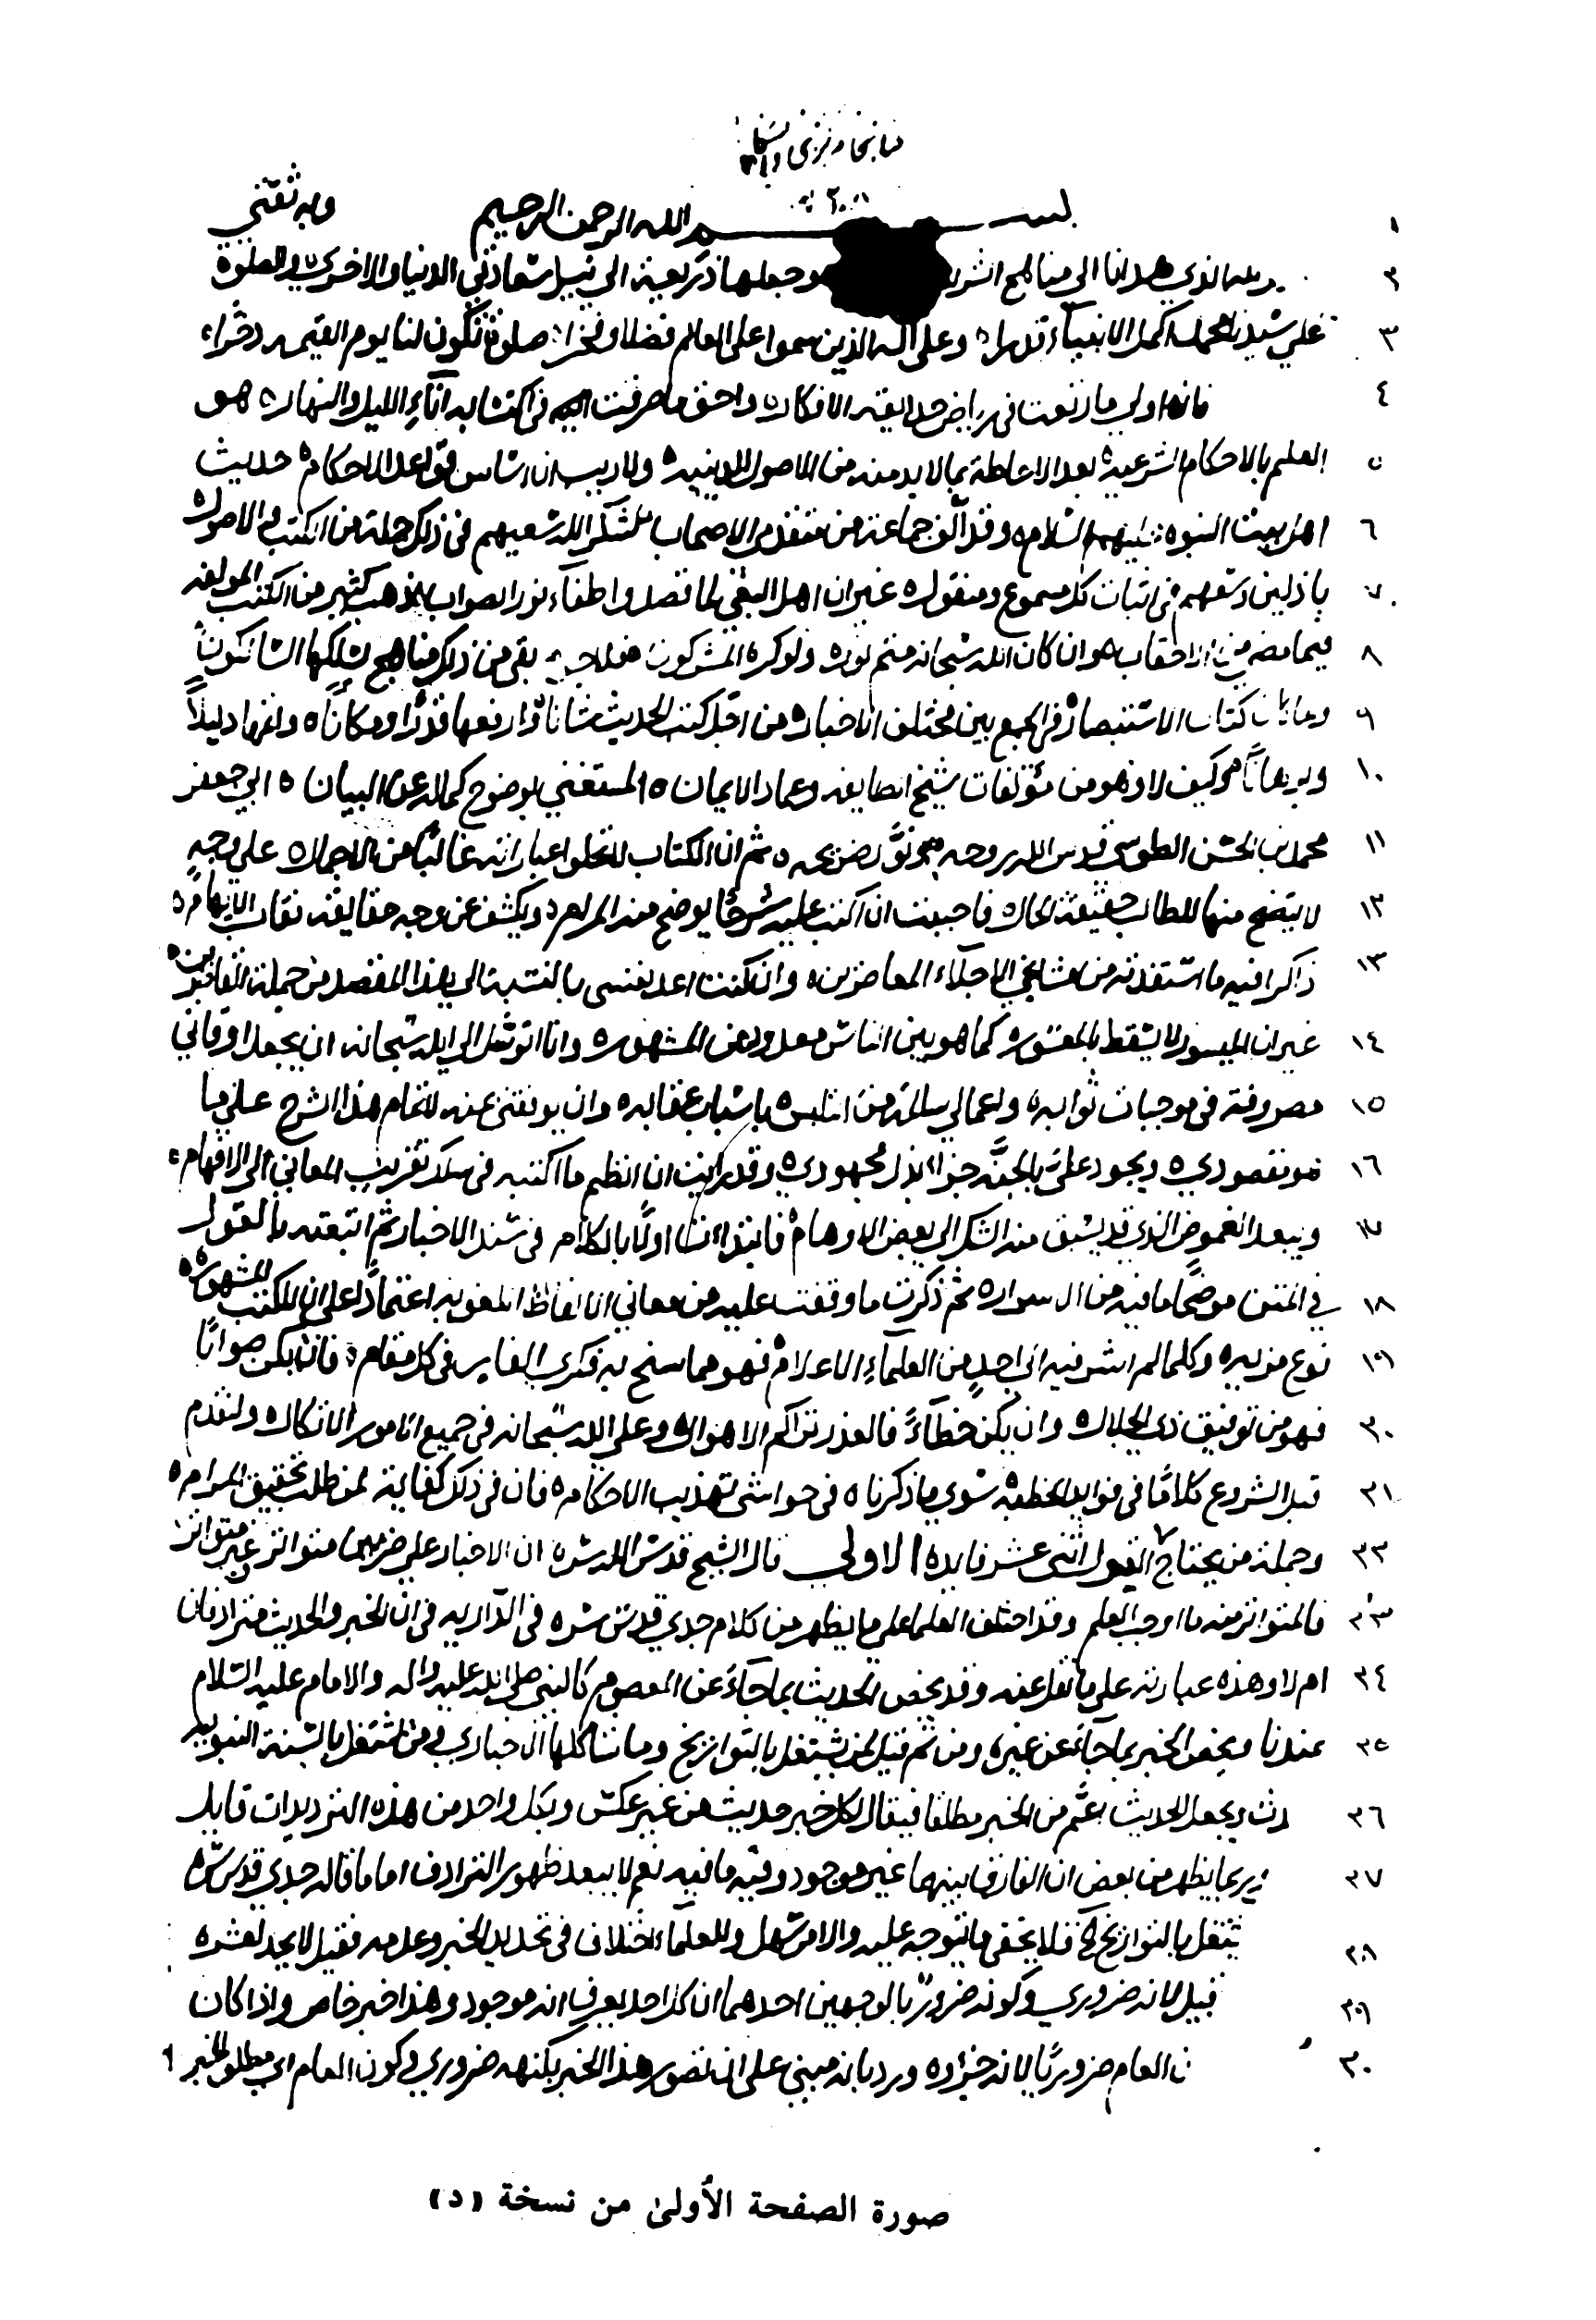 بسم الله الرحمن الرحيم وبه ثقتي
١
٢ الذي هدانا الى مناهج الشريعة وجعلها ذريعة الى نيل سعادتي الدنيا والاخرى والصلوة
٣ على سيدنا محمد اكمل الانبياء قدرا وعلى اله الذين سموا على العالم فضلا وفخرا صلوة تكون لنا يوم القيمه ذخرا
٤ فانه اولى ما رتعت في رياض حدايقه الافكار واحق ما صرفت في اكتسابه آناء الليل والنهار هو
٥ العلم بالاحكام الشرعية بعد الاحاطة بما لا بد منه من الاصول الدينيه ولا ريب ان اساس قواعد الاحكام حديث
٦ اهل بيت النبوه عليهم السلام وقد الف جماعة من متقدمي الاصحاب شكر الله سعيهم في ذلك جملة من الكتب والاصول
٧ باذلين وسعهم في اثبات كل مسموع ومنقول غير ان اهل البغي لما قصدوا اطفاء نور الصواب ذهب كثير من الكتب المولفه
٨ فيما مضى من الاحقاب وان كان الله سبحانه متم نوره ولو كره المشركون بقي من ذلك مناهج يسلكها السالكون
٩ كتاب الاستبصار في الجمع بين مختلف الاخبار من اجل كتب الحديث شانا وارفعها قدرا ومكانا دليلا
١٠ وبرهانا وكيف لا وهو من مؤلفات شيخ الطايفه وعماد الايمان المستغني بوضوح كماله عن البيان ابي جعفر
١١ محمد بن الحسن الطوسي قدس الله روحه ونور ضريحه ثم ان الكتاب عباراته غالبا من الاجمال على وجه
١٢ لا يتضح منها للطالب حقيقة الحال فاحببت ان اكتب عليه شرحا يوضح منه المرام ويكشف عن وجه حقايقه نقاب الابهام
١٣ ذاكرا فيه ما استفدته من مشايخي الاجلاء المعاصرين وان كنت اعد نفسي بالنسبة الى هذا المقصد من جملة القاصرين
١٤ غير ان الميسور لا يسقط بالمعسور كما هو بين الناس معدود من المشهور وانا اتوسل الى الله سبحانه ان يجعل اوقاتي
١٥ مصروفة في موجبات ثوابه واعمالي سالمة من التلبس باسباب عقابه وان يوفقني بمنه لاتمام هذا الشرح على ما
١٦ هو مقصودي ويجود علي بالجنة جزاء بذل مجهودي وقد رايت ان انظم ما اكتبه في سلك تقريب المعاني الى الافهام
١٧ ويبعد الغموض الذي قد يسبق منه الشك الى بعض الاوهام فابتدات اولا بالكلام في سند الاخبار ثم اتبعته بالقول
١٨ في المتن موضحا ما فيه من الاسرار ثم ذكرت ما وقفت عليه من معاني الالفاظ اللغويه اعتمادا على ان للكتب المشهوره
١٩ نوع مزيه وكلما لم اشر فيه الى احد من العلماء الاعلام فهو مما سنح به فكري الفاتر في كل مقام فان يكن صوابا
٢٠ فهو من توفيق ذي الجلال وان يكن خطاء فالعذر تراكم الاهوال وعلى الله سبحانه في جميع الامور الاتكال ولنقدم
٢١ قبل الشروع كلاما في فوايد الخطبة سوى ما ذكرناه في حواشي تهذيب الاحكام فان في ذلك كفاية لمن طلب تحقيق المرام
٢٢ وجملة من يحتاج القول اثنى عشر فايده الاولى قال الشيخ قدس الله سره ان الاخبار على ضربين متواتر وغير متواتر
٢٣ فالمتواتر منه ما اوجب العلم وقد اختلف العلما على ما يظهر من كلام جدي قدس سره في الدرايه في ان الخبر والحديث مترادفان
٢٤ ام لا وهذه عبارته على ما نقل عنه وقد يخص الحديث بما جاء عن المعصوم كالنبي صلى الله عليه واله والامام عليه السلام
٢٥ عندنا ويخص الخبر بما جاء عن غيره ومن ثم قيل لمن يشتغل بالتواريخ وما شاكلها الاخباري ولمن اشتغل بالسنة النبويه
٢٦ ويجعل الحديث اعم من الخبر مطلقا فيقال لكل خبر حديث من غير عكس وبكل واحد من هذه الترديدات قايل
٢٧ ربما يظهر من بعض ان الفارق بينهما غير موجود وفيه ما فيه نعم لا يبعد ظهور الترادف اما ما قاله جدي قدس سره
٢٨ بالتواريخ الخ فلا يخفى ما يتوجه عليه والامر سهل وللعلماء اختلاف في تحديد الخبر وعدمه فقيل لا يحد لعسره
٢٩ قيل لانه ضروري وكونه ضروريا لوجهين احدهما ان كل احد يعرف انه موجود وهذا خبر خاص واذا كان
٣٠ العام ضروريا لانه جزؤه ورد بانه مبني على ان تصور هذا الخبر بكنهه ضروري وكون العام اي مطلق الخبر
صورة الصفحة الأولى من نسخة (د)